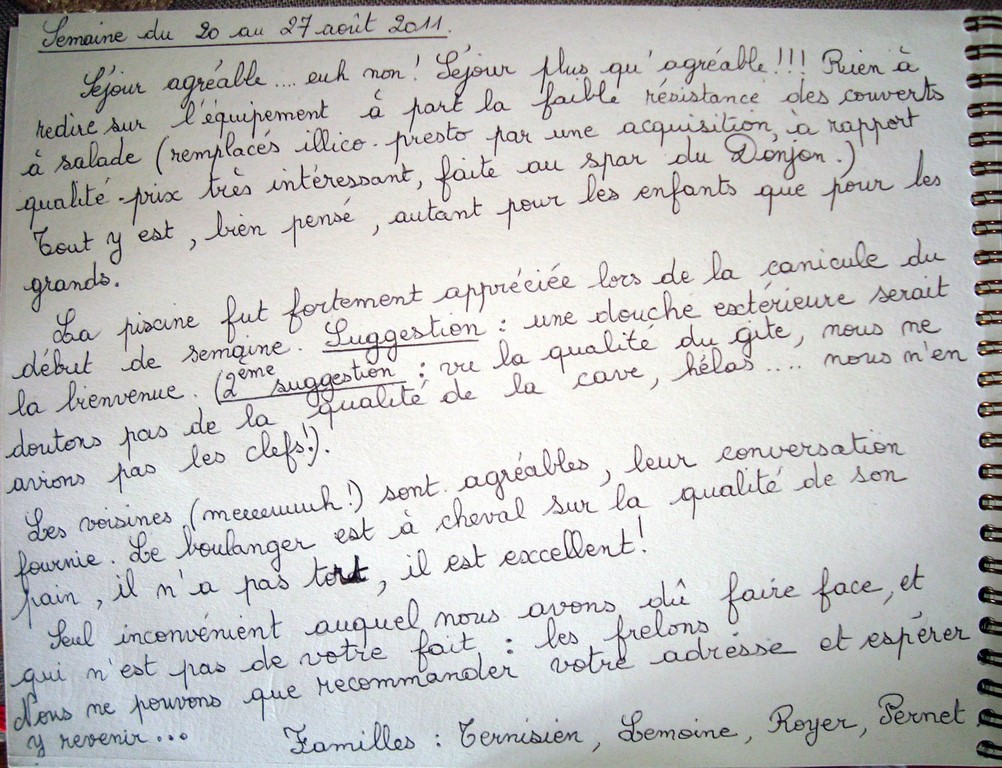 Semaine du 20 au 27 août 2011.
Séjour agréable.... euh non! Séjour plus qu'agréable!!! Rien à
redire sur l'équipement à part la faible résistance des couverts
à salade (remplacés illico-presto par une acquisition, à rapport
qualité-prix très intéressant, faite au spar du Donjon.)
Tout y est, bien pensé, autant pour les enfants que pour les
grands.
La piscine fut fortement appréciée lors de la canicule du
début de semaine. Suggestion : une douche extérieure serait
la bienvenue. (2ème suggestion : vu la qualité du gîte, nous ne
doutons pas de la qualité de la cave, hélas.... nous n'en
avions pas les clefs!).
Les voisines (meeeuuuh!) sont agréables, leur conversation
fournie. Le boulanger est à cheval sur la qualité de son
pain, il n'a pas tort, il est excellent!
Seul inconvénient auquel nous avons dû faire face, et
qui n'est pas de votre fait : les frelons
Nous ne pouvons que recommander votre adresse et espérer
y revenir...
Familles : Ternisien, Lemoine, Royer, Pernet